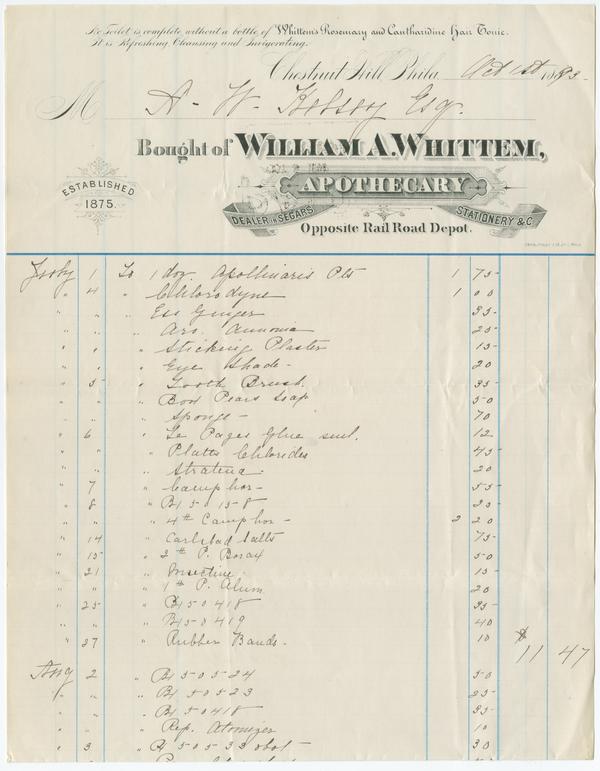 No Toilet is complete without a bottle of Whittem's Rosemary and Cantharidine Hair Tonic.
It is Refreshing, Cleansing and Invigorating.
Chestnut Hill Phila. Oct 1st 1893
M A. W. Esq.
Bought of WILLIAM A. WHITTEM,
APOTHECARY
DEALER IN SEGARS STATIONERY & C.
Opposite Rail Road Depot.
ESTABLISHED
1875.
July 1 To 1 doz. Apollinaris Pts 1 75
" 4 " Chlorodyne 1 00
" " " Ess Ginger 35
" " " Aro. Ammonia 25
" " " Sticking Plaster 15
" " " Eye Shade - 20
" 5 " Tooth Brush 35
" " " Box Pears Soap 50
" " " Sponge - 70
" 6 " Le Pages Glue sml. 12
" " " Platts Chlorides 45
" " " Stratena. 20
" 7 " Camphor - 55
" 8 " Rx 150158 25
" " " 4 lb Camphor - 2 20
" 14 " Carlsbad Salts 75
" 15 " 2 lb P. Borax 50
" 21 " Insectine. 15
" " " 1 lb P. Alum 20
" 25 " Rx 150418 35
" " " Rx 150419 40
" 27 " Rubber Bands. 10 $ 11 47
Aug 2 " Rx 150524 50
" " " Rx 150523 25
" " " Rx 150418 35
" " " Rep. Atomizer 10
" 3 " Rx 150533 30